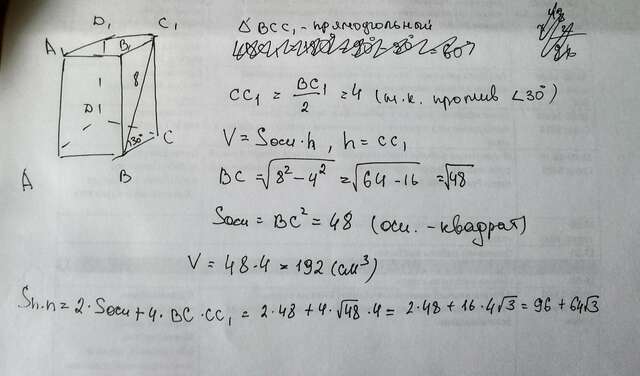 D₁ C₁
A₁ B₁
8
D
30° C
A B
Δ BCC₁ - прямоугольный
CC₁ = BC₁/2 = 4 (т.к. против ∠30°)
V = Sосн·h, h = CC₁
BC = √(8² - 4²) = √(64 - 16) = √48
Sосн = BC² = 48 (осн. - квадрат)
V = 48·4 = 192 (см³)
Sп.п = 2·Sосн + 4·BC·CC₁ = 2·48 + 4·√48·4 = 2·48 + 16·4√3 = 96 + 64√3